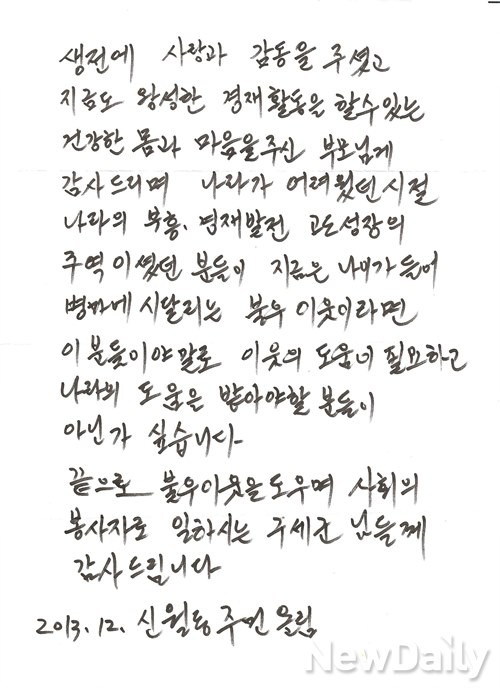 생전에 사랑과 감동을 주셨고
지금도 왕성한 경재활동을 할수있는
건강한 몸과 마음을주신 부모님게
감사드리며 나라가 어려웠던시절
나라의 부흥. 경재발전 고도성장의
주역이셨던 분들이 지금은 나이가들어
병마에 시달리는 불우 이웃이라면
이분들이야말로 이웃의 도움이 필요하고
나라의 도움을 받아야할 분들이
아닌가 싶습니다
끝으로 불우이웃을도우며 사회의
봉사자로 일하시는 구세군 님들께
감사드립니다
2013.12. 신월동주민올림
NewDaily